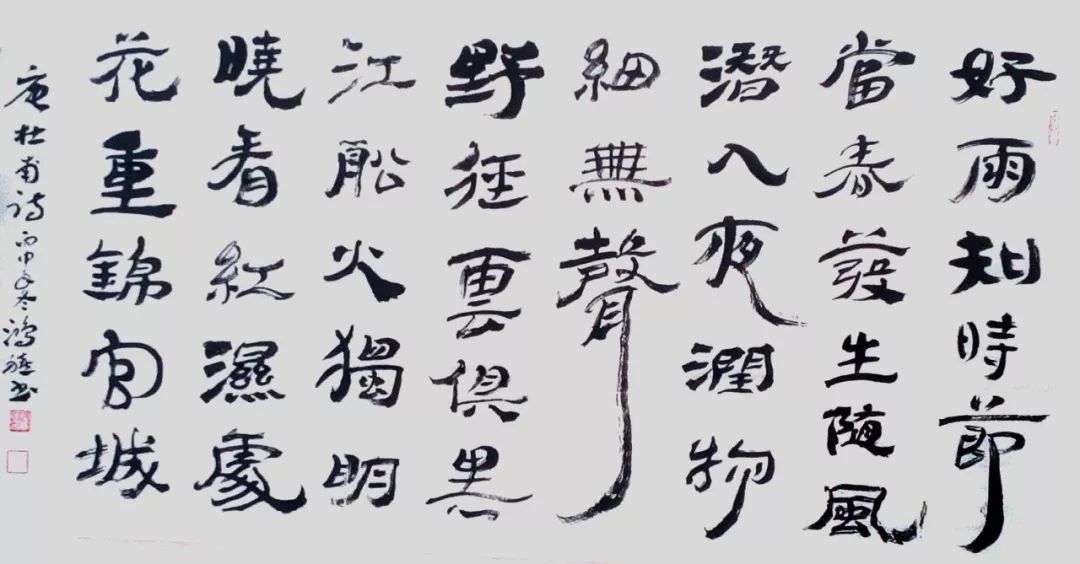 好雨知時節
當春發生隨風
潛入夜潤物
細無聲
野徑雲俱黑
江船火獨明
曉看紅濕處
花重錦官城
唐杜甫詩丙申年冬鴻